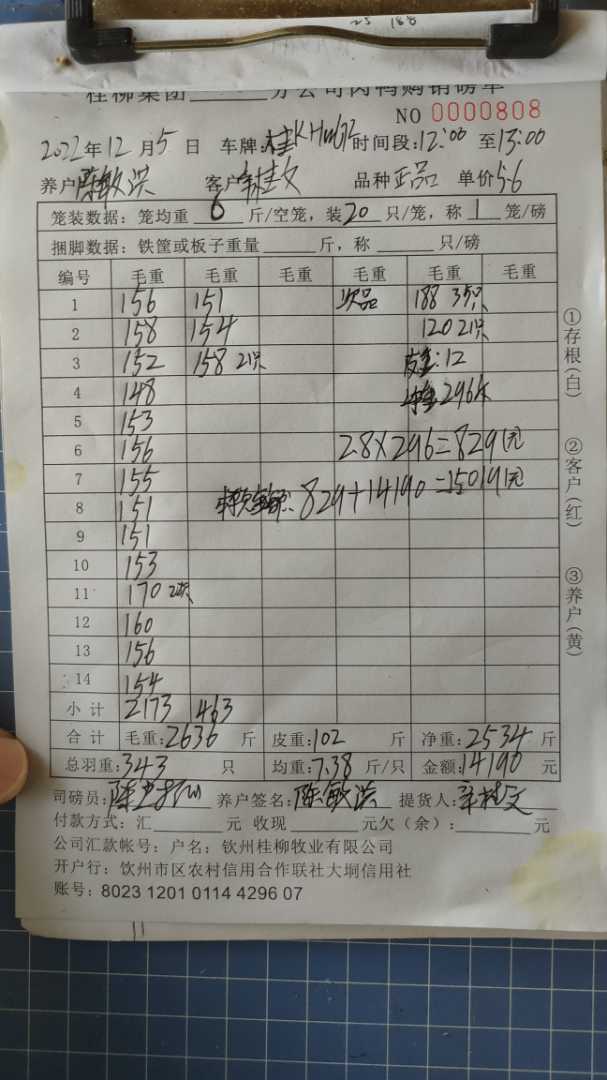 25 188
桂柳集团______分公司肉鸭购销磅单
NO 0000808
2022年12月5日 车牌:桂K 时间段:12:00至13:00
养户陈敏洪 客户 品种正品 单价5.6
笼装数据:笼均重 6 斤/空笼,装20只/笼,称1笼/磅
捆脚数据:铁筐或板子重量______斤,称______只/磅
编号 毛重 毛重 毛重 毛重 毛重 毛重
1 156 151 次品 188 3只
2 158 154 120 2只
3 152 158 2只 皮重:12
4 148 净重296斤
5 153
6 156 2.8×296=829元
7 155
8 151 829+14190=15019元
9 151
10 153
11 170 2只
12 160
13 156
14 154
小计 2173 463
合计 毛重:2636斤 皮重:102斤 净重:2534斤
总羽重:343只 均重:7.38斤/只 金额:14190元
司磅员:陈 养户签名:陈敏洪 提货人:
付款方式:汇______元 收现______元欠(余):______元
公司汇款帐号:户名:钦州桂柳牧业有限公司
开户行:钦州市区农村信用合作联社大垌信用社
账号:8023 1201 0114 4296 07
①存根(白)
②客户(红)
③养户(黄)
11